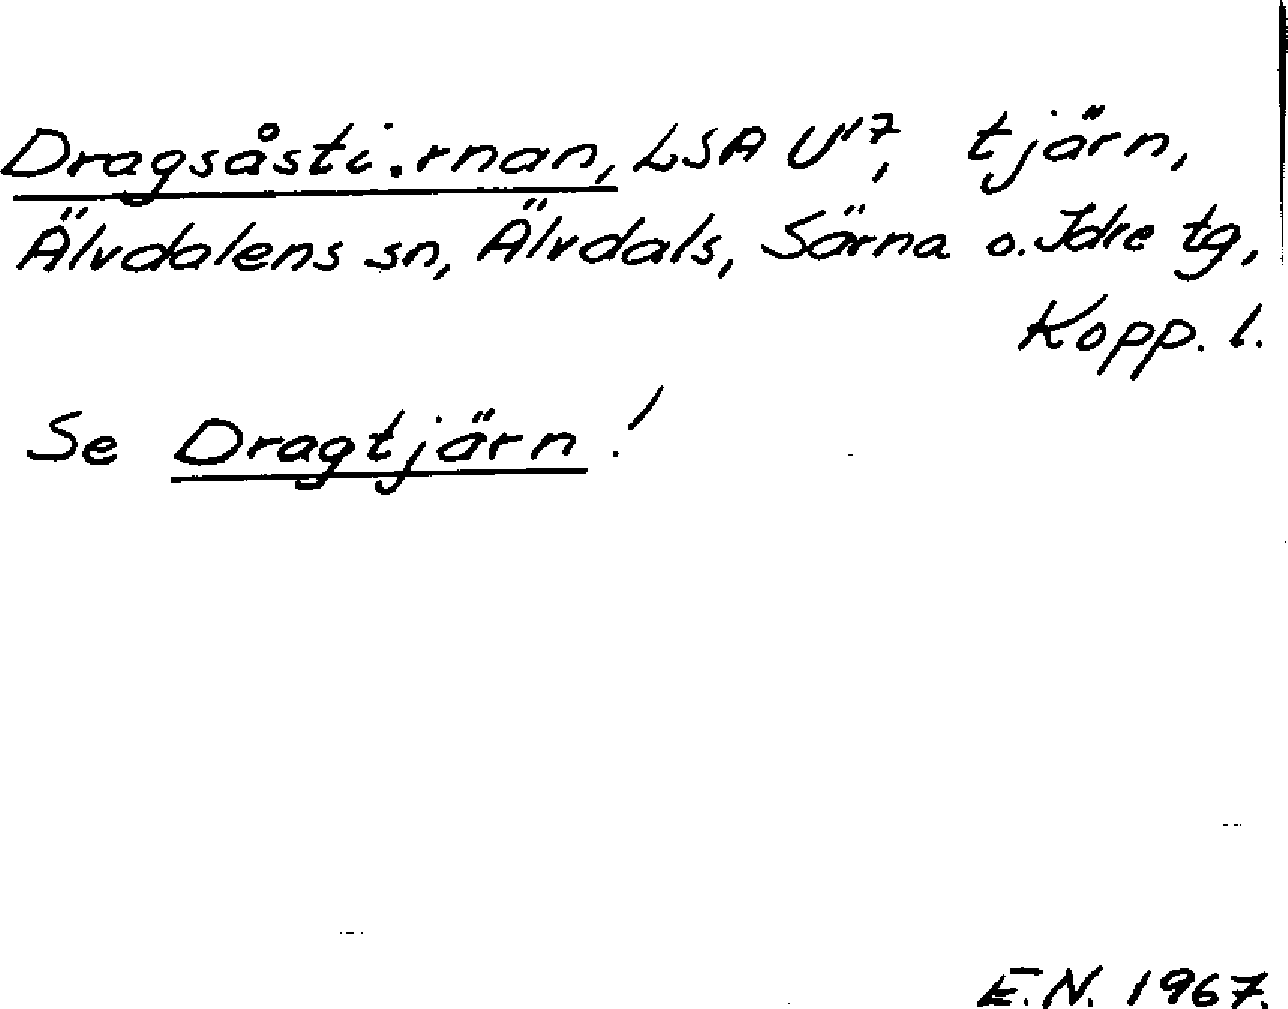 Dragsåsti.rnan, LSA U17, tjärn,
Älvdalens sn, Älvdals, Särna o. Idre tg,
Kopp. l.
Se Dragtjärn!
E.N. 1967.